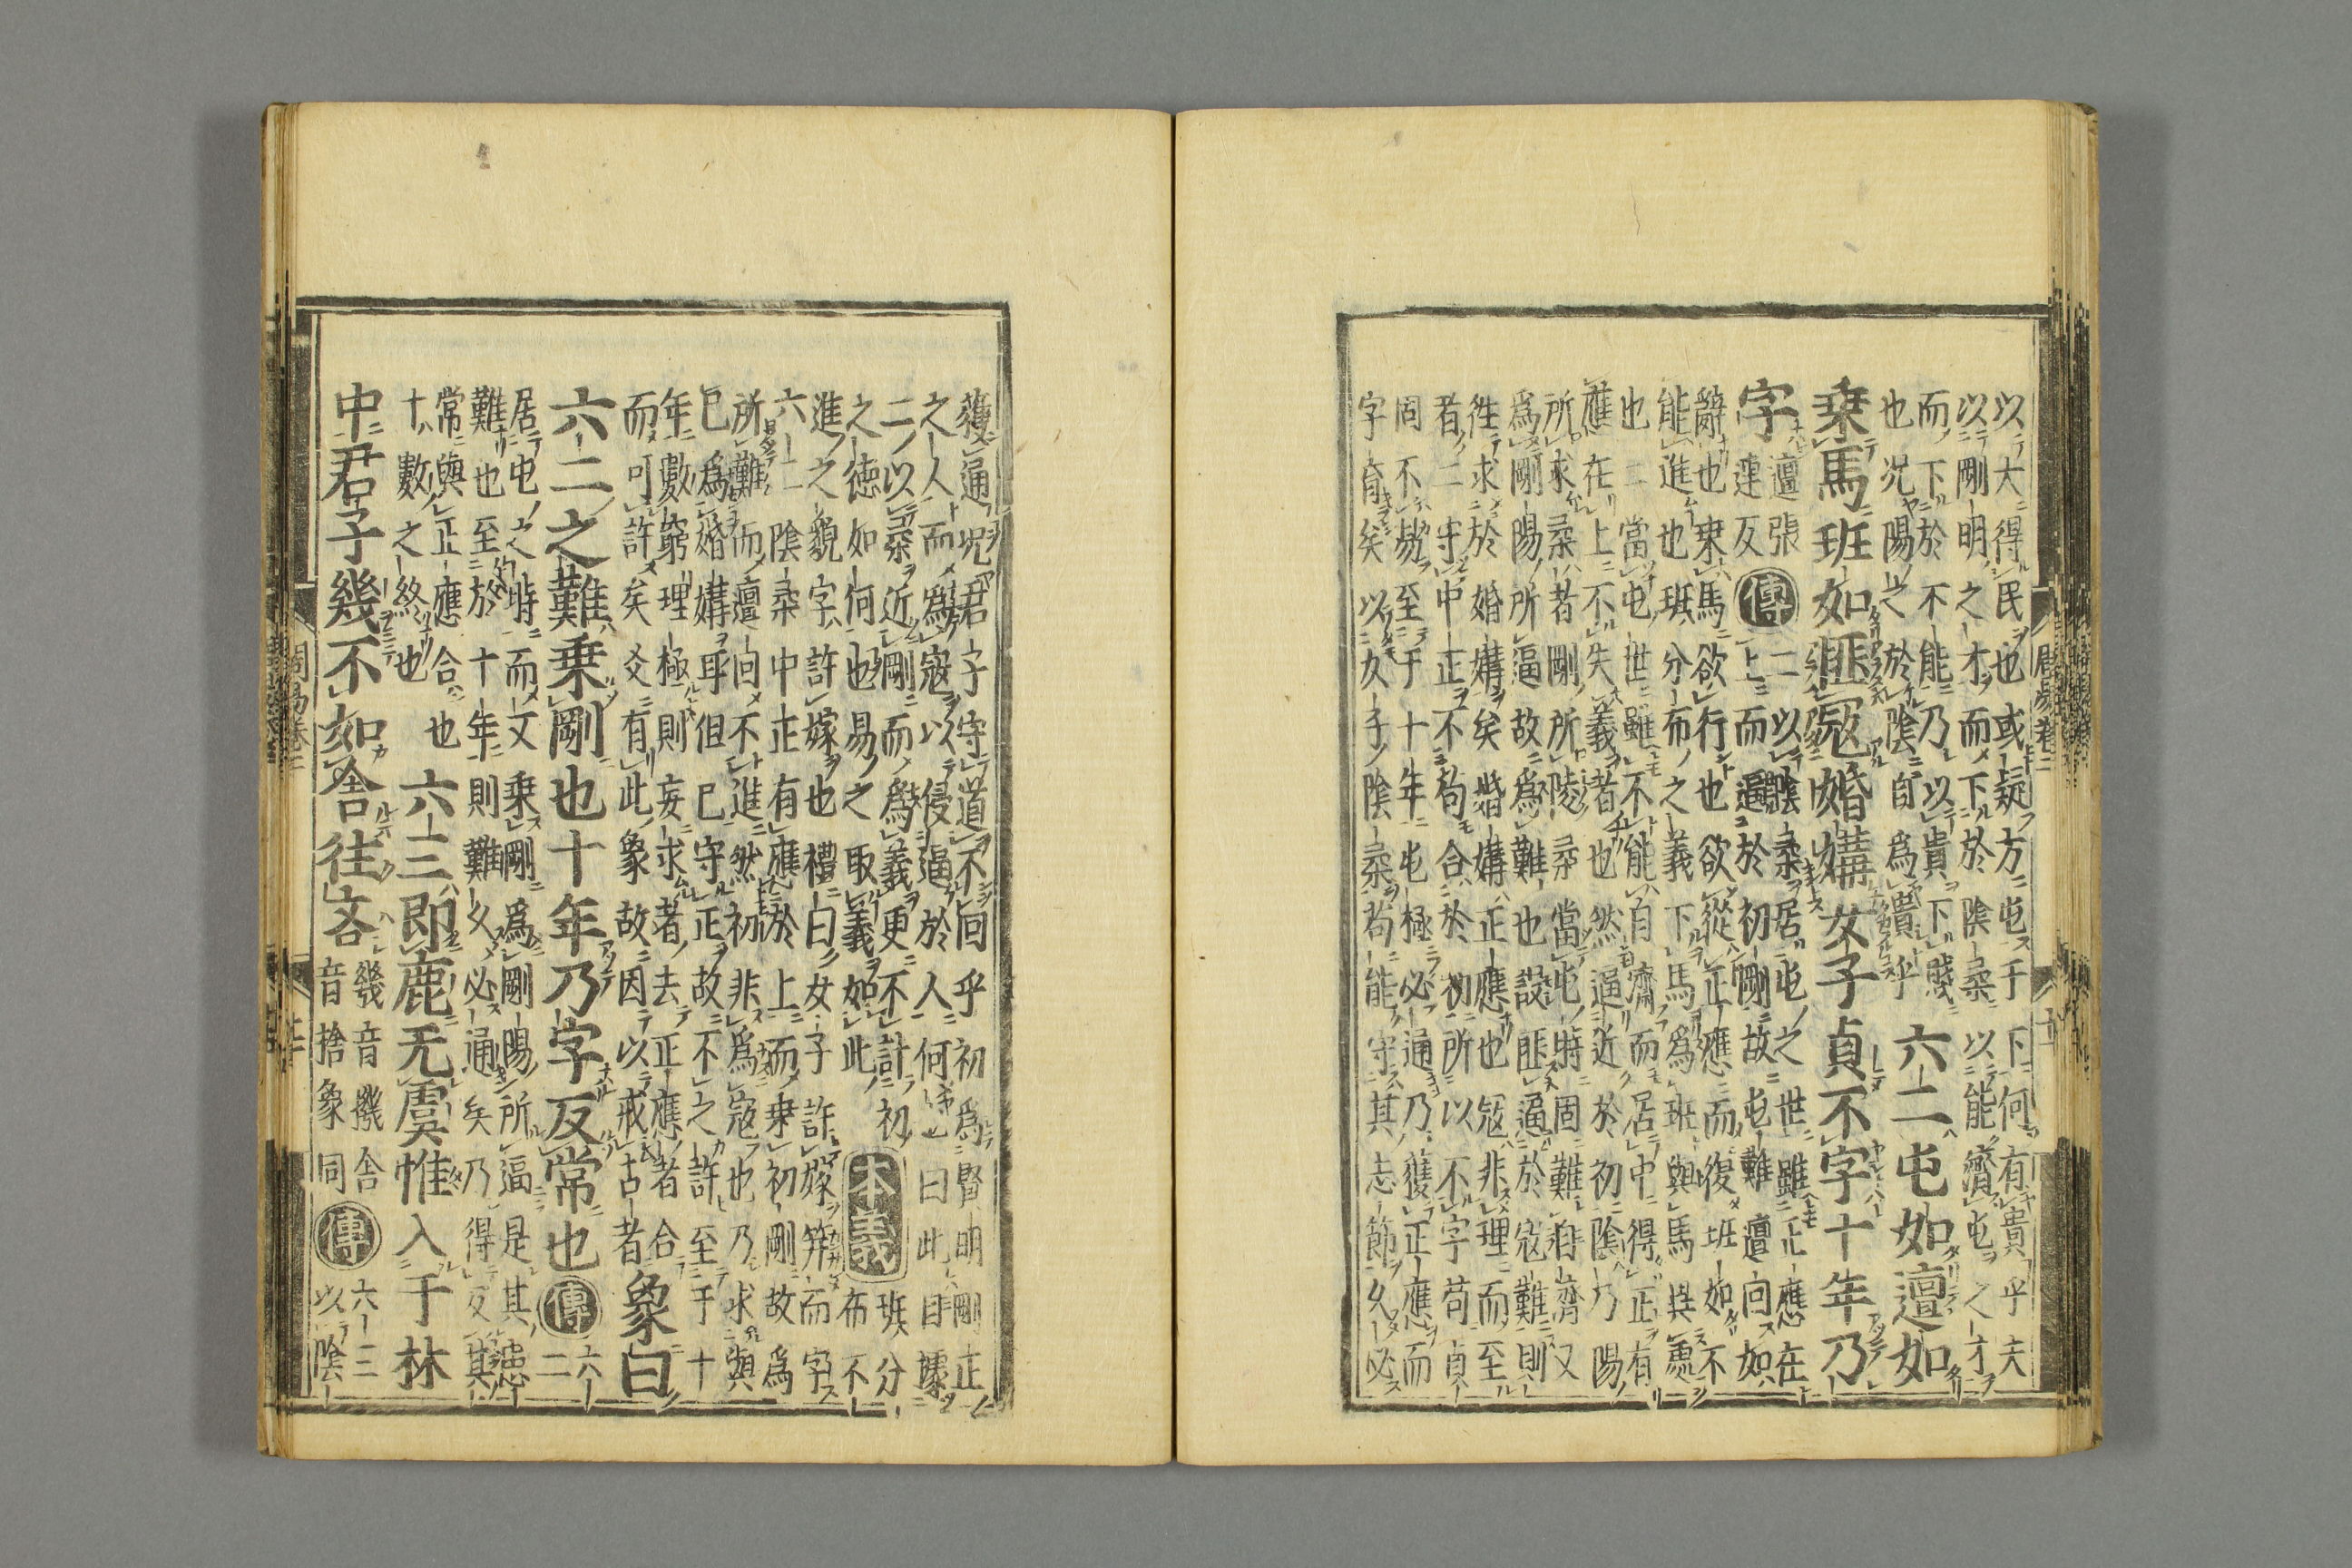 以大得民也或疑方屯于下何有貴乎夫
以剛明之才而下於陰柔以能濟屯之才
而下於不能乃以貴下賤
也況陽之於陰自爲貴乎
六二屯如邅如
乗馬班如匪寇婚媾女子貞不字十年乃
字
邅張
連反
傳
二以陰柔居屯之世雖正應在
上而逼於初剛故屯難邅回如
辭也乗馬欲行也欲從正應而復班如不
能進也班分布之義下馬爲班與馬異處
也二當屯世雖不能自濟而居中得正有
應在上不失義者也然逼近於初陰乃陽
所求柔者剛所陵柔當屯時固難自濟又
爲剛陽所逼故爲難也設匪逼於寇難則
徃求於婚媾矣婚媾正應也寇非理而至
者二守中正不苟合於初所以不字苟貞
固不易至于十年屯極必通乃獲正應而
字育矣以女子陰柔苟能守其志節久必
獲通況君子守道不回乎初爲賢明剛正
之人而爲寇以侵逼於人何也曰此自據
二以柔近剛而爲義更不計初
之德如何也易之取義如此
本義
班分
布不
進之貌字許嫁也禮曰女子許嫁筓而字
六二陰柔中正有應於上而乗初剛故爲
所難而邅回不進然初非爲寇也乃求與
己爲婚媾耳但已守正故不之許至于十
年數窮理極則妄求者去正應者合
而可許矣爻有此象故因以戒占者
象曰
六二之難乗剛也十年乃字反常也
傳
六
二
居屯之時而又乗剛爲剛陽所逼是其患
難也至於十年則難久必通矣乃得反其
常與正應合也
十數之終也
六三即鹿无虞惟入于林
中君子幾不如舍往吝
幾音機舍
音捨象同
傳
六三
以陰
周易卷二